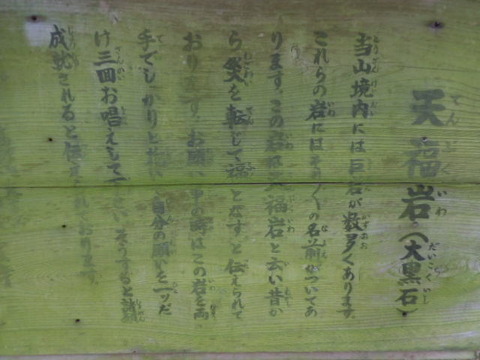 天福岩(大黒石)
当山境内には巨岩が数多くあります
これらの岩にはそれ〴〵の名前がついてあ
ります この岩は天福岩と云い昔か
ら災を転じて福となすと伝えられて
おります お願い事の時はこの岩を両
手でしっかりと 自分の願いを一ツだ
け三回お唱えして下さい そうすると諸
成就されると伝えられております